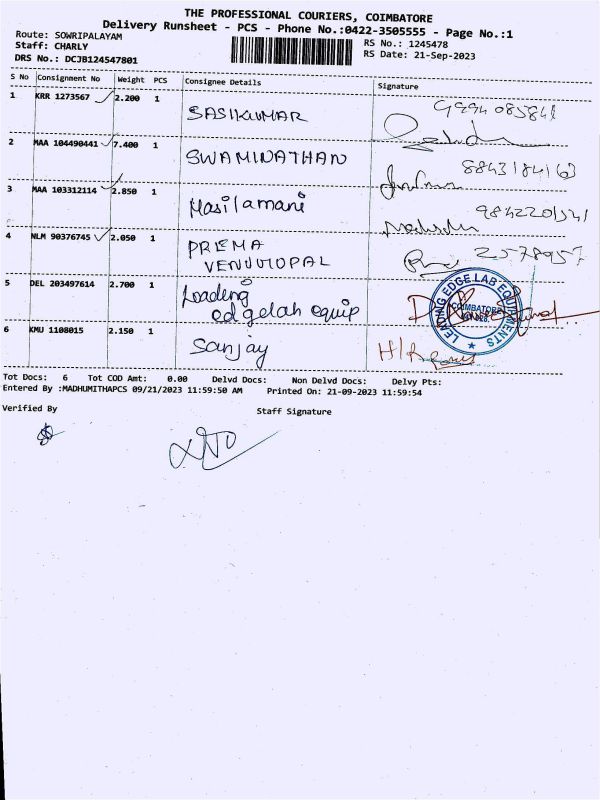 THE PROFESSIONAL COURIERS, COIMBATORE
Delivery Runsheet - PCS - Phone No.:0422-3505555 - Page No.:1
Route: SOWRIPALAYAM
Staff: CHARLY
DRS No.: DCJB124547801
RS No.: 1245478
RS Date: 21-Sep-2023
S No Consignment No Weight PCS Consignee Details Signature
1 KRR 1273567 2.200 1 SASIKUMAR 9994085841
2 MAA 104490441 7.400 1 SWAMINATHAN 8843184163
3 MAA 103312114 2.850 1 Masilamani 9842201541
4 NLM 90376745 2.050 1 PREMA 2578957
VENUGOPAL
5 DEL 203497614 2.700 1 Loading
edgelab equip
LEADING EDGE LAB EQUIPMENTS
COIMBATORE
6 KMU 1108015 2.150 1 Sanjay
Tot Docs: 6 Tot COD Amt: 0.00 Delvd Docs: Non Delvd Docs: Delvy Pts:
Entered By :MADHUMITHAPCS 09/21/2023 11:59:50 AM Printed On: 21-09-2023 11:59:54
Verified By Staff Signature